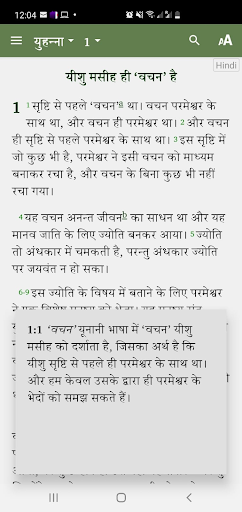 12:04
युहन्ना 1 AA
Hindi
यीशु मसीह ही ‘वचन’ है
1 1 सृष्टि से पहले ‘वचन’ था। वचन परमेश्वर के
साथ था, और वचन ही परमेश्वर था। 2 और वचन
ही सृष्टि से पहले परमेश्वर के साथ था। 3 इस सृष्टि में
जो कुछ भी है, परमेश्वर ने इसी वचन को माध्यम
बनाकर रचा है, और वचन के बिना कुछ भी नहीं
रचा गया।
4 यह वचन अनन्त जीवन b का साधन था और यह
मानव जाति के लिए ज्योति बनकर आया। 5 ज्योति
तो अंधकार में चमकती है, परन्तु अंधकार ज्योति
पर जयवंत न हो सका।
6-9 इस ज्योति के विषय में बताने के लिए परमेश्वर
1:1 ‘वचन’ यूनानी भाषा में ‘वचन’ यीशु
मसीह को दर्शाता है, जिसका अर्थ है कि
यीशु सृष्टि से पहले ही परमेश्वर के साथ था।
और हम केवल उसके द्वारा ही परमेश्वर के
भेदों को समझ सकते हैं।